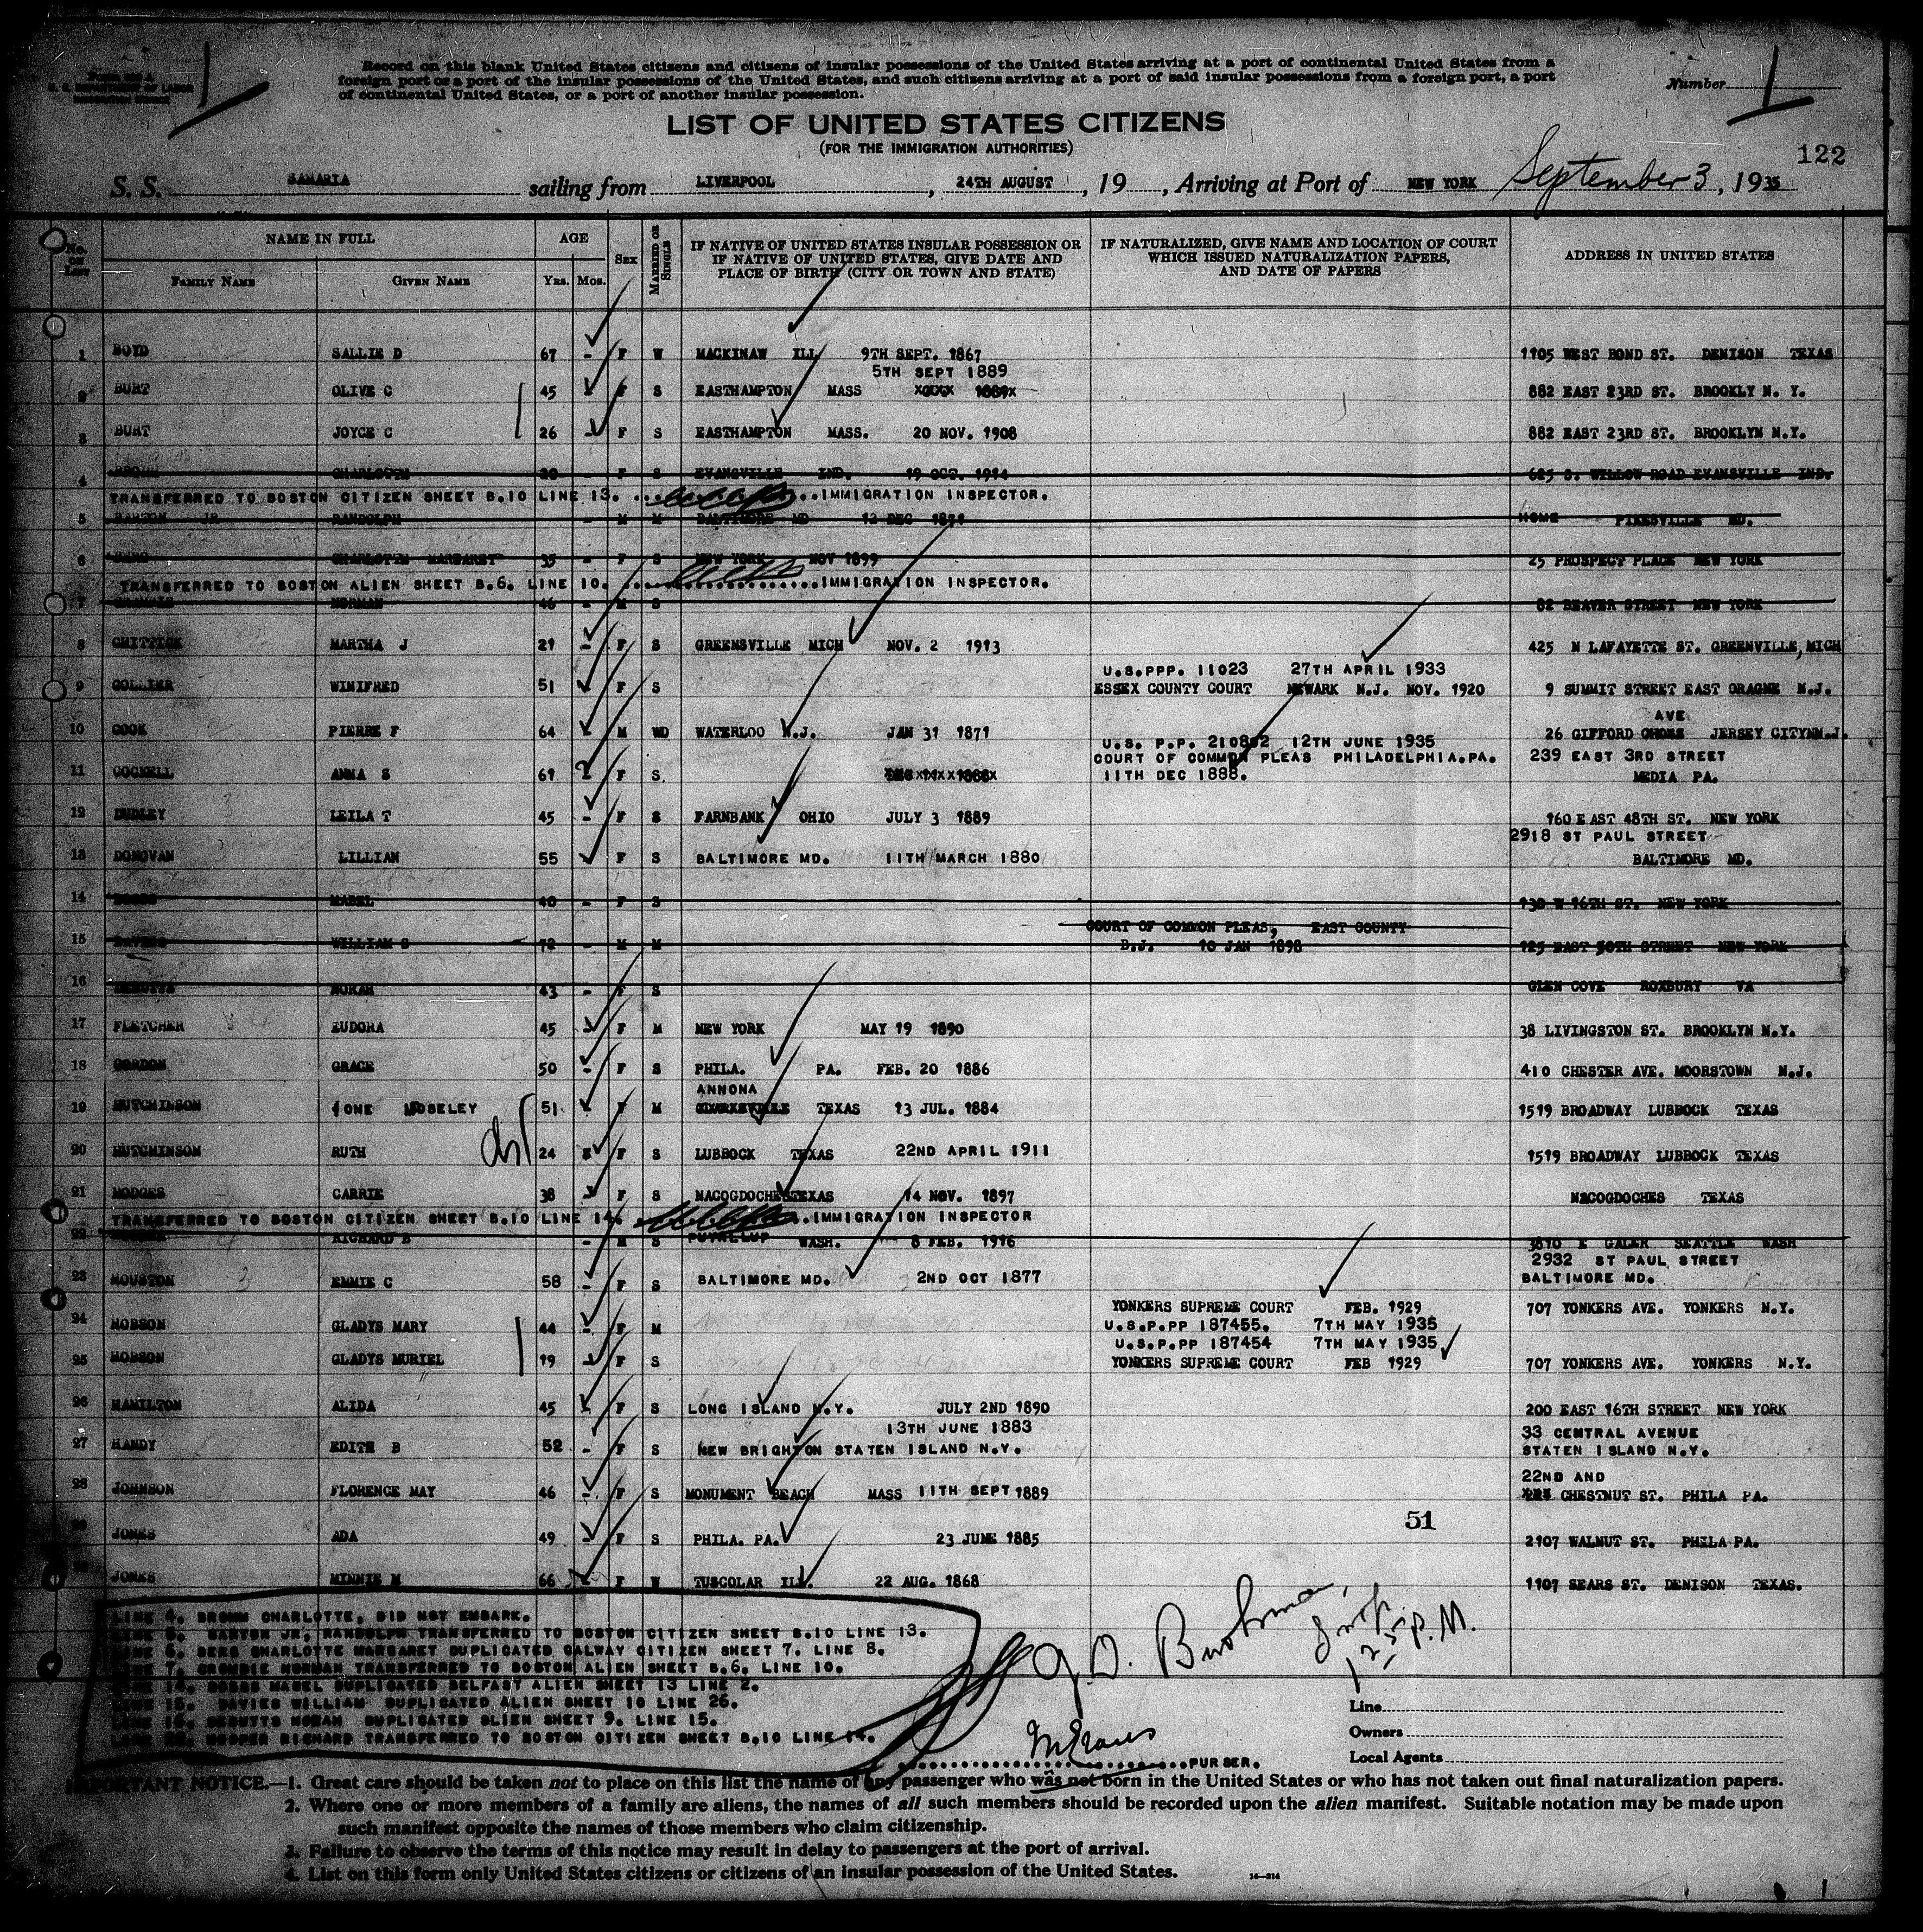 Record on this blank United States citizens and citizens of insular possessions of the United States arriving at a port of continental United States from a
foreign port or a port of the insular possessions of the United States, and such citizens arriving at a port of said insular possessions from a foreign port, a port
of continental United States, or a port of another insular possession.
U. S. DEPARTMENT OF LABOR
Number 1
LIST OF UNITED STATES CITIZENS
(FOR THE IMMIGRATION AUTHORITIES)
122
S. S. SAMARIA sailing from LIVERPOOL, 24TH AUGUST, 19 , Arriving at Port of NEW YORK September 3, 1935
No. on List NAME IN FULL AGE Sex Married or Single IF NATIVE OF UNITED STATES INSULAR POSSESSION OR IF NATIVE OF UNITED STATES, GIVE DATE AND PLACE OF BIRTH (CITY OR TOWN AND STATE) IF NATURALIZED, GIVE NAME AND LOCATION OF COURT WHICH ISSUED NATURALIZATION PAPERS, AND DATE OF PAPERS ADDRESS IN UNITED STATES
Family Name Given Name Yrs. Mos.
1 BOYD SALLIE D 67 - F W MACKINAW ILL 9TH SEPT. 1867 1105 WEST BOND ST. DENISON TEXAS
5TH SEPT 1889
2 BURT OLIVE C 45 - F S EASTHAMPTON MASS 882 EAST 23RD ST. BROOKLY N. Y.
3 BURT JOYCE C 26 - F S EASTHAMPTON MASS. 20 NOV. 1908 882 EAST 23RD ST. BROOKLYN N.Y.
4 BROWN CHARLOTTE 20 - F S EVANSVILLE IND. 19 OCT. 1914 625 S. WILLOW ROAD EVANSVILLE IND.
TRANSFERRED TO BOSTON CITIZEN SHEET B.10 LINE 13. IMMIGRATION INSPECTOR.
5 BARTON JR RANDOLPH - M M BALTIMORE MD 12 DEC 1871 HOME PIKESVILLE MD.
6 BERG CHARLOTTE MARGARET 35 - F S NEW YORK NOV 1899 25 PROSPECT PLACE NEW YORK
TRANSFERRED TO BOSTON ALIEN SHEET B.6. LINE 10. IMMIGRATION INSPECTOR.
7 NORMAN 46 - M S 82 BEAVER STREET NEW YORK
8 CHITTICK MARTHA J 21 - F S GREENSVILLE MICH NOV. 2 1913 425 N LAFAYETTE ST. GREENVILLE, MICH
U.S.PPP. 11023 27TH APRIL 1933
9 COLLIER WINIFRED 51 - F S ESSEX COUNTY COURT NEWARK N.J. NOV. 1920 9 SUMMIT STREET EAST ORAGNE N.J.
AVE
10 COOK PIERRE F 64 - M WD WATERLOO N.J. JAN 31 1871 26 GIFFORD JERSEY CITYNN.J.
U.S. P.P. 210802 12TH JUNE 1935
COURT OF COMMON PLEAS PHILADELPHIA.PA. 239 EAST 3RD STREET
11 COCKELL ANNA S 61 F S. 11TH DEC 1888. MEDIA PA.
12 DUDLEY LEILA T 45 - F S FARNBANK OHIO JULY 3 1889 160 EAST 48TH ST. NEW YORK
2918 ST PAUL STREET
13 DONOVAN LILLIAN 55 - F S BALTIMORE MD. 11TH MARCH 1880 BALTIMORE MD.
14 MABEL 40 - F S 130 W 16TH ST. NEW YORK
COURT OF COMMON PLEAS, EAST COUNTY
15 DAVIES WILLIAM S 72 - M M B.J. 10 JAN 1898 125 EAST 50TH STREET NEW YORK
16 DEBUTTS NORAH 43 - F S GLEN COVE ROXBURY VA
17 FLETCHER EUDORA 45 - F M NEW YORK MAY 19 1890 38 LIVINGSTON ST. BROOKLYN N.Y.
18 GORDON GRACE 50 - F S PHILA. PA. FEB. 20 1886 410 CHESTER AVE. MOORSTOWN N.J.
ANNONA
19 HUTCHINSON IONE MOSELEY 51 - F M CLARKSVILLE TEXAS 13 JUL. 1884 1519 BROADWAY LUBBOCK TEXAS
20 HUTCHINSON RUTH 24 F S LUBBOCK TEXAS 22ND APRIL 1911 1519 BROADWAY LUBBOCK TEXAS
21 HODGES CARRIE 38 - F S NACOGDOCHESTEXAS 14 NOV. 1897 NACOGDOCHES TEXAS
TRANSFERRED TO BOSTON CITIZEN SHEET B.10 LINE 14. IMMIGRATION INSPECTOR
22 RICHARD B - M S PUYALLUP WASH. 8 FEB. 1916 3870 E GALER SEATTLE WASH
2932 ST PAUL STREET
23 HOUSTON EMMIE C 58 - F S BALTIMORE MD. 2ND OCT 1877 BALTIMORE MD.
YONKERS SUPREME COURT FEB. 1929 707 YONKERS AVE. YONKERS N.Y.
24 HOBSON GLADYS MARY 44 - F M U.S.P.PP 187455. 7TH MAY 1935
U.S.P.PP 187454 7TH MAY 1935
25 HOBSON GLADYS MURIEL 19 - F S YONKERS SUPREME COURT FEB 1929 707 YONKERS AVE. YONKERS N.Y.
26 HAMILTON ALIDA 45 - F S LONG ISLAND N.Y. JULY 2ND 1890 200 EAST 16TH STREET NEW YORK
13TH JUNE 1883 33 CENTRAL AVENUE
27 HANDY EDITH B 52 - F S NEW BRIGHTON STATEN ISLAND N.Y. STATEN ISLAND N.Y.
22ND AND
28 JOHNSON FLORENCE MAY 46 - F S MONUMENT BEACH MASS 11TH SEPT 1889 CHESTNUT ST. PHILA PA.
51
29 JONES ADA 49 - F S PHILA. PA. 23 JUNE 1885 2107 WALNUT ST. PHILA PA.
JONES MINNIE M 66 - F W TUSCOLAR ILL. 22 AUG. 1868 1107 SEARS ST. DENISON TEXAS.
LINE 4. BROWN CHARLOTTE, DID NOT EMBARK.
LINE 5. BARTON JR, RANDOLPH TRANSFERRED TO BOSTON CITIZEN SHEET B.10 LINE 13.
LINE 6. BERG CHARLOTTE MARGARET DUPLICATED GALWAY CITIZEN SHEET 7. LINE 8.
LINE 7. CROMBIE NORMAN TRANSFERRED TO BOSTON ALIEN SHEET B.6. LINE 10.
LINE 14. MABEL DUPLICATED BELFAST ALIEN SHEET 13 LINE 2.
LINE 15. DAVIES WILLIAM DUPLICATED ALIEN SHEET 10 LINE 26.
LINE 16. DEBUTTS NORAH DUPLICATED ALIEN SHEET 9. LINE 15.
LINE 22. HOOPER RICHARD TRANSFERRED TO BOSTON CITIZEN SHEET B.10 LINE 14.
125 P.M.
PURSER.
Line
Owners
Local Agents
IMPORTANT NOTICE.—1. Great care should be taken not to place on this list the name of any passenger who was not born in the United States or who has not taken out final naturalization papers.
2. Where one or more members of a family are aliens, the names of all such members should be recorded upon the alien manifest. Suitable notation may be made upon
such manifest opposite the names of those members who claim citizenship.
3. Failure to observe the terms of this notice may result in delay to passengers at the port of arrival.
4. List on this form only United States citizens or citizens of an insular possession of the United States.
14—214